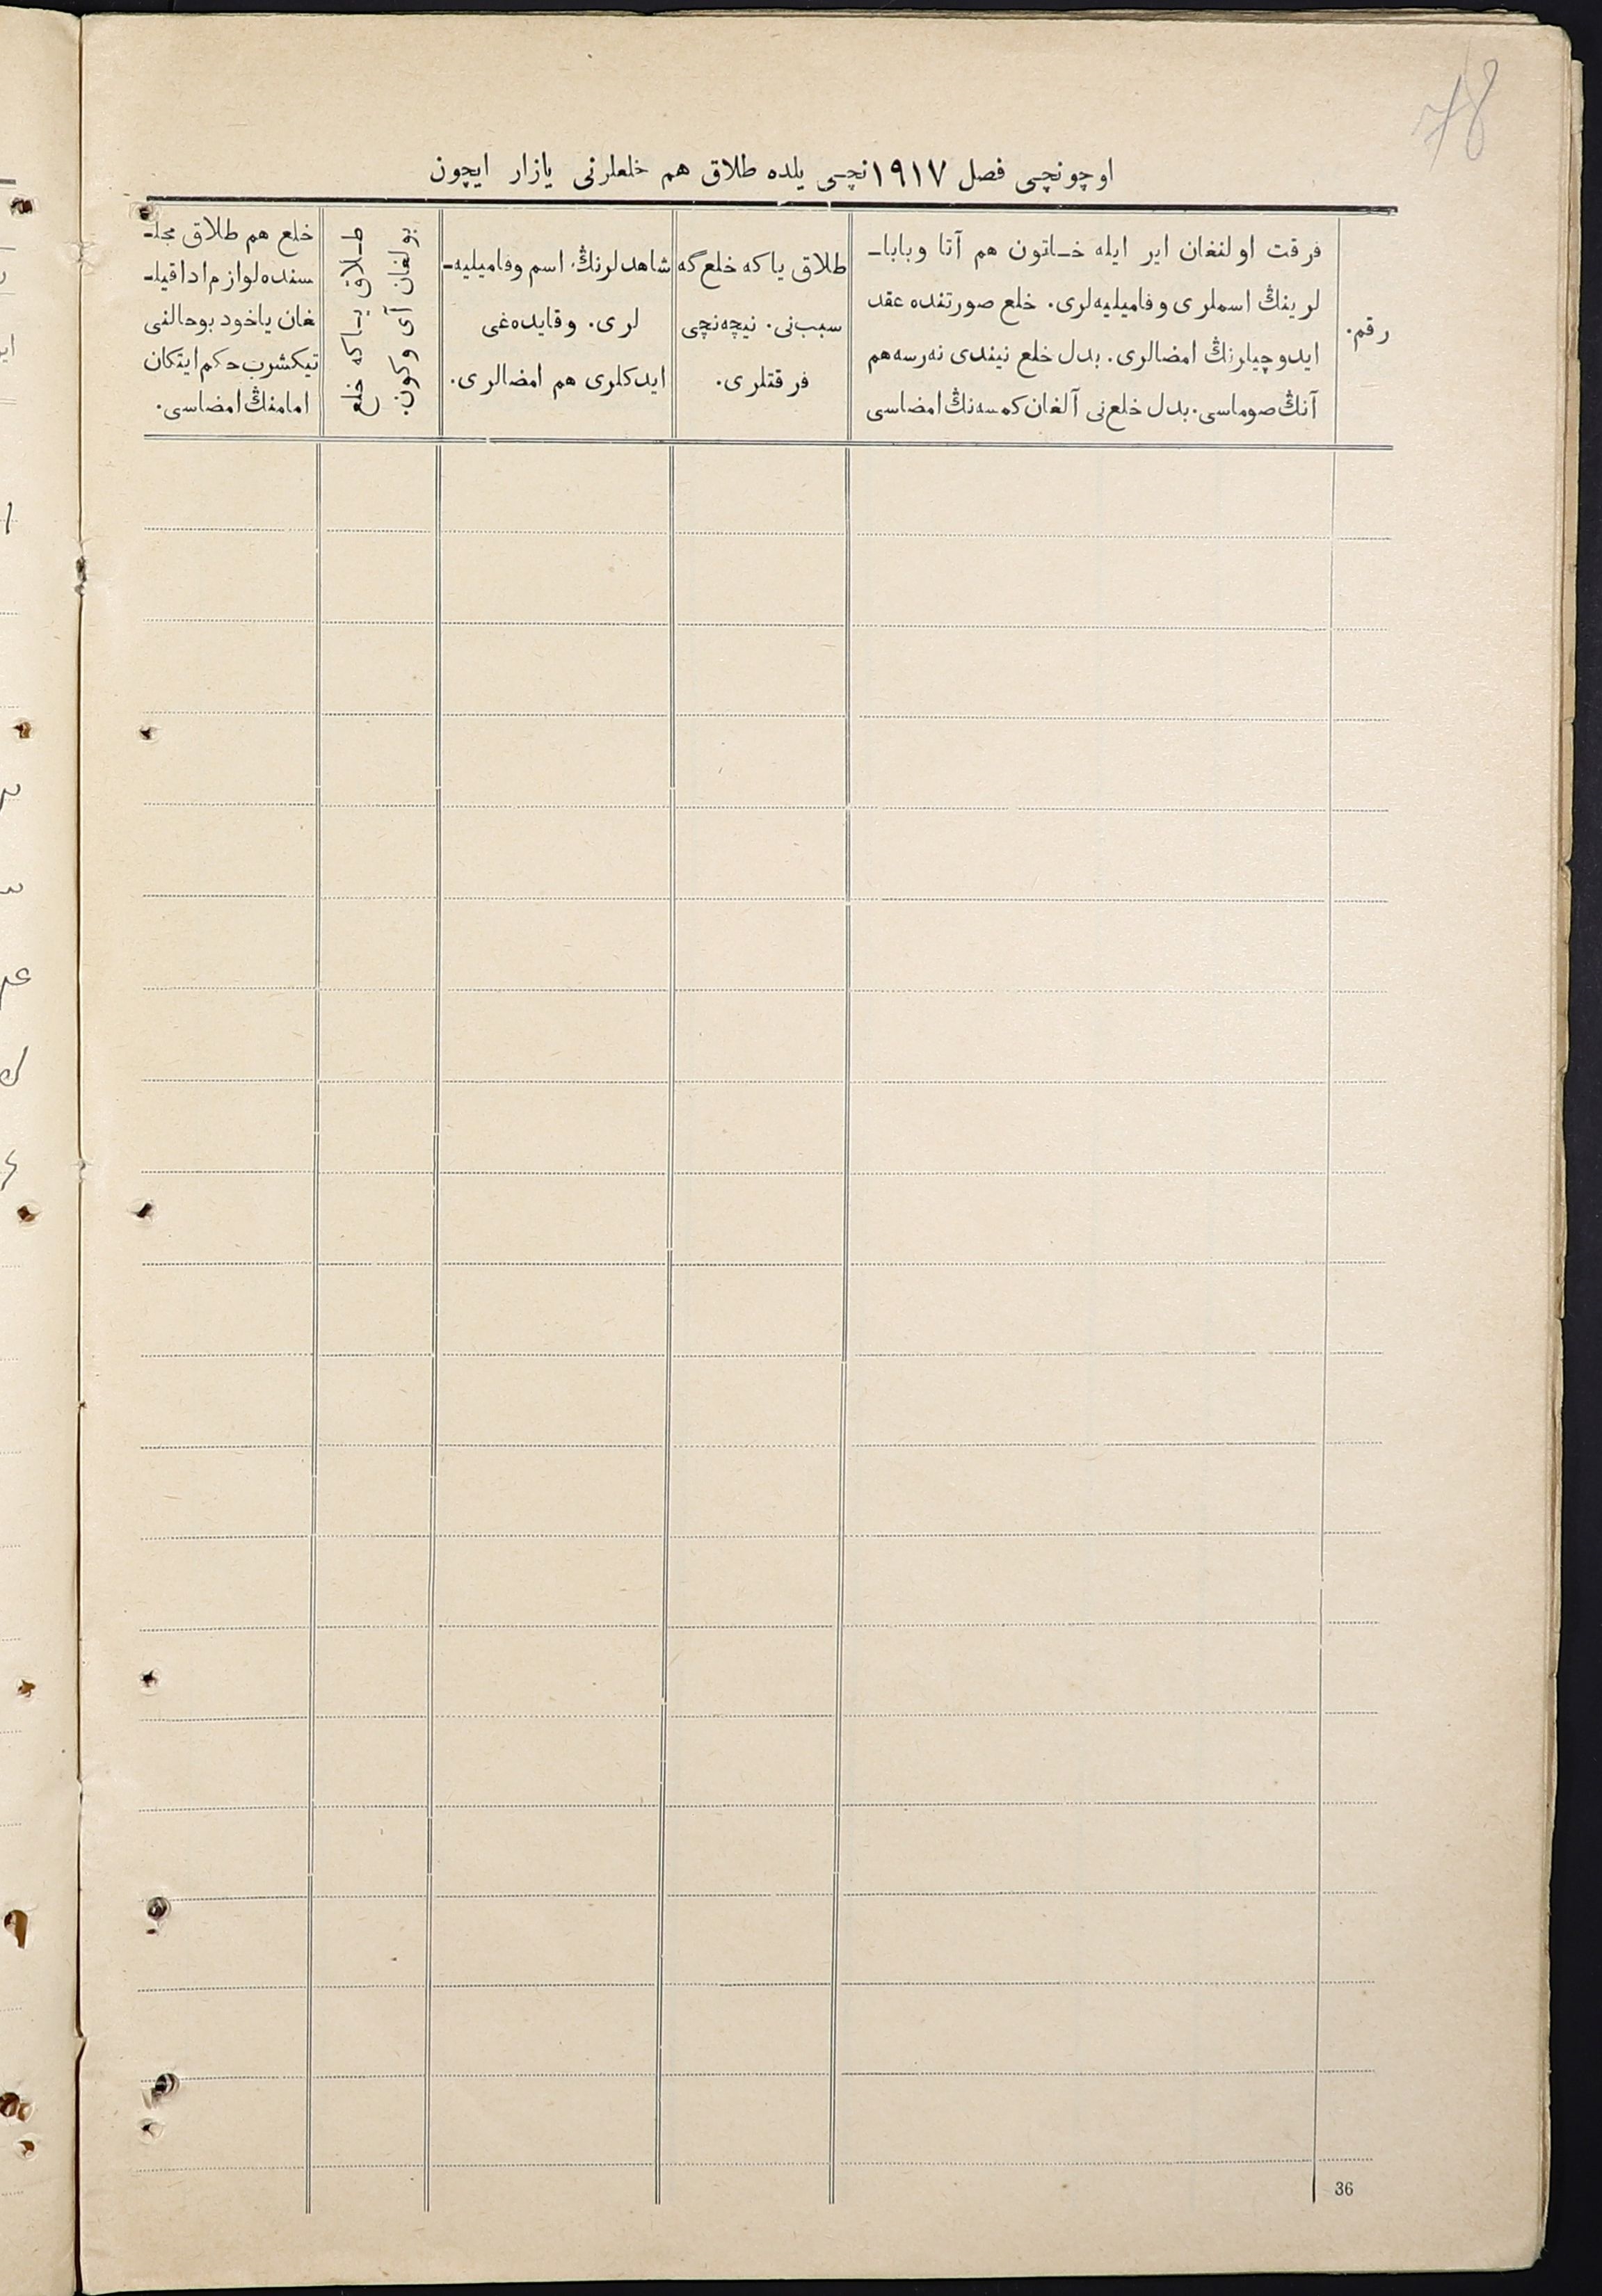 78
اوچونچی فصل ۱۹۱۷نچی یلده طلاق هم خلعلرنی یازار ایچون
رقم.
فرقت اولنغان ایر ایله خـاتون هم آتا وبابا۔
لرینڭ اسملری وفامیلیه‌لری. خلع صورتنده عقد
ایدوچیلرنڭ امضالری. بدل خلع نیندی نه‌رسه‌هم
آنڭ صوماسی. بدل خلع‌نی آلغان کمسه‌نڭ امضاسی
طلاق یا که خلع گه
سبب‌نی. نیچه‌نچی
فرقتلری.
شاهدلرنڭ اسم وفامیلیه۔
لری. وقایده‌غی
ایدکلری هم امضالری.
طـلاق یـاکه خلع
بولغان آی وکون.
خلع هم طلاق مجلـ
سنده‌لوازم‌اداقیلـ
غان یاخود بوحالنی
تیکشرب حکم ایتکان
امامنڭ امضاسی.
36